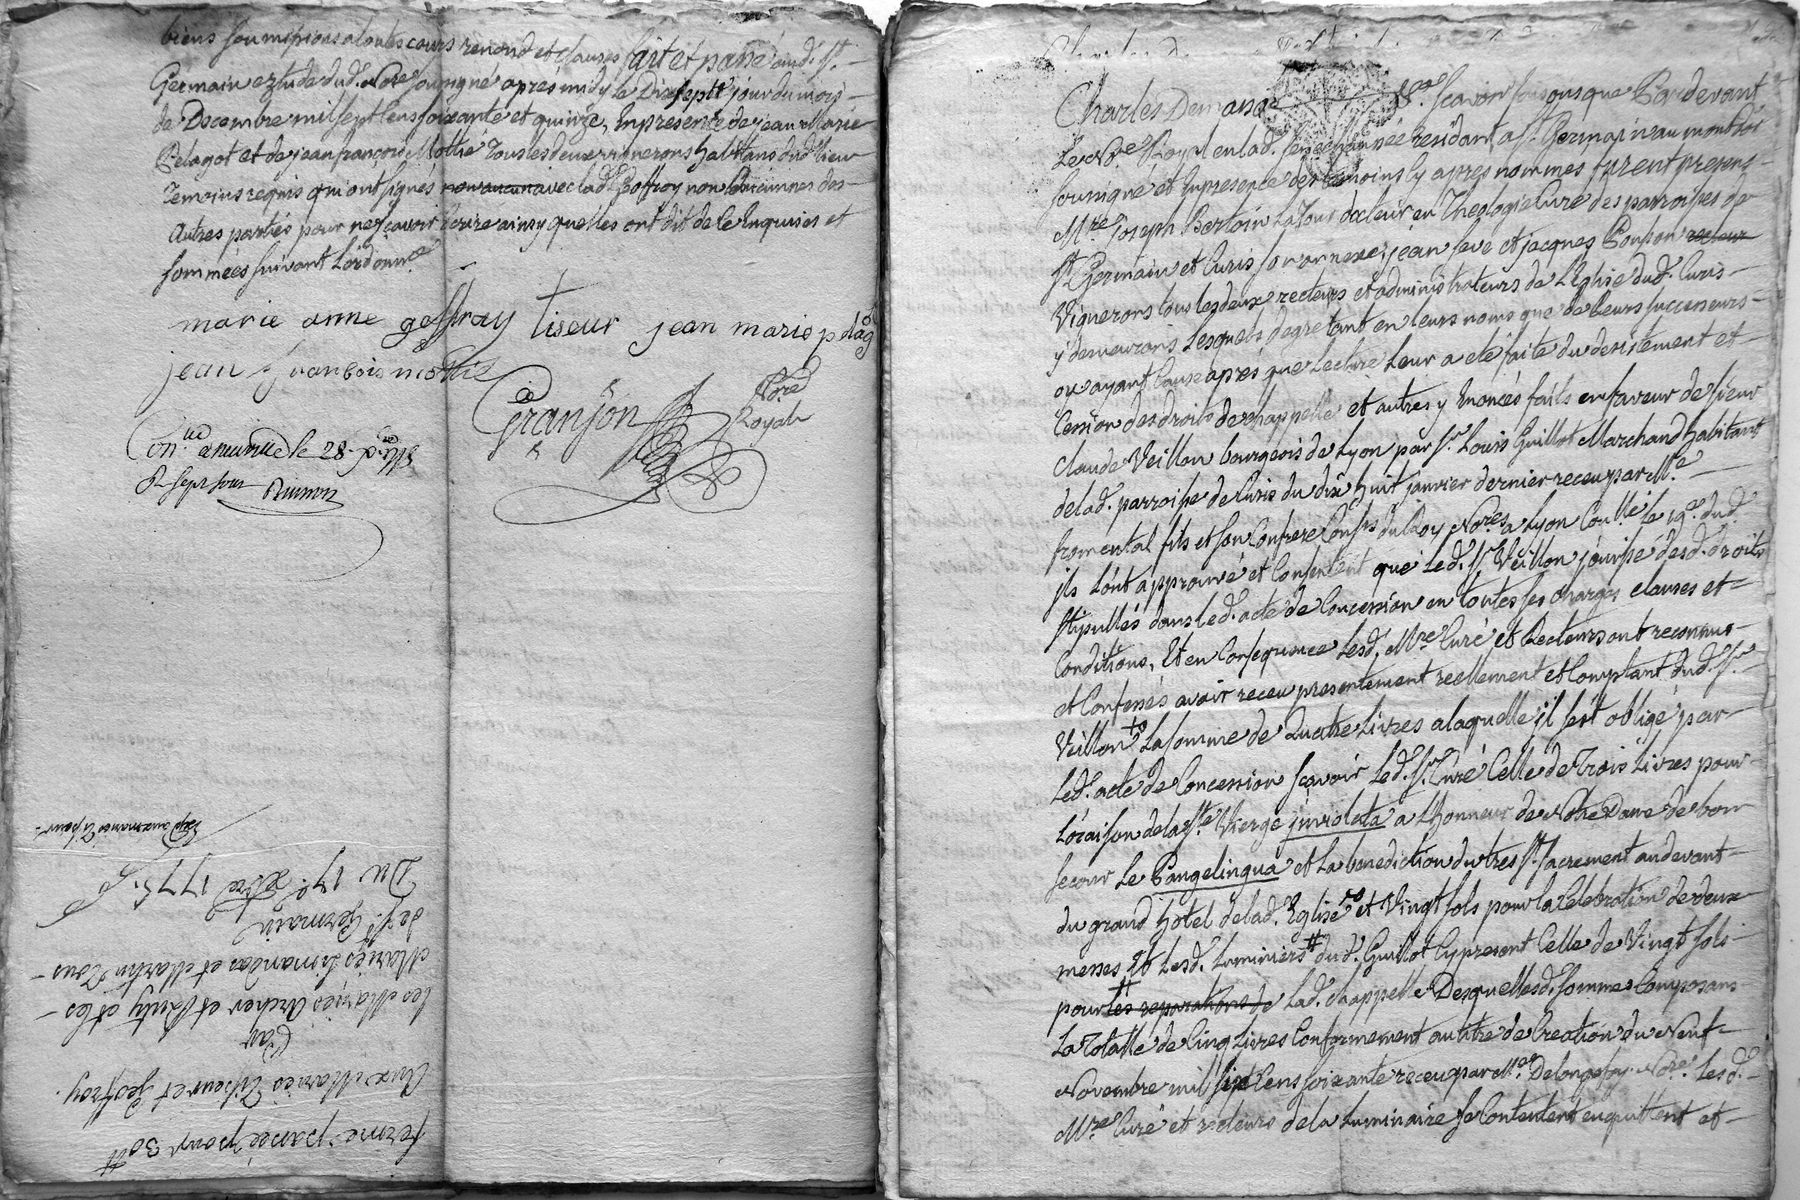 biens soumissions a toutes cours renond. et clauses fait et passé aud. St.
Germain eztude dud. Nore. soussigné aprés midy le Dixseptt jour du mois
de Decembre mil sept cens soixante et quinze, En presence de jean Marie
Pelagot et de jean francois Mottié Tous les deux vignerons habitans dud. lieu
Temoins requis qui ont signés avec lad. Geoffroy non les
autres partiés pour ne sçavoir écrire ainsy quelles ont dit de ce Enquises et
sommées suivant Lordonnce.
marie anne geffray tiseur jean marie plag
jean francois mottie
Granjon Nore Royal
Con.lé a neuville le 28.
R sept sous
ferme passée pour 30 tt
Aux Mariés Tiseur et Geoffroy.
Par
les Mariés Archer et et les
Mariés Limandas et Martin Tous
de St. Germain
Du 17e. Xbre 1775.
Charles Demasso Sçavoir faisons que Pardevant
Le Nore. Royal en lad. senechaussée residant a St. Germain au montdor
soussigné et En presence des temoins Cy apres nommés furent presens
Mre. Joseph Bertoin Latour docteur en Theologie Curé des parroises de
St. Germain et Curis son annexe, jean seve et jacques Ponson recteur
Vignerons tous les deux recteurs et administrateurs de L'Eglise dud. Curis
y demeurans Lesquels degré tant en leurs noms que de leurs successeurs
ou ayant Cause aprés que Lecture Leur a eté faite du desistement et
Cession des droits de chappelle et autres y Enoncés faits en faveur de sieur
Claude Veillon bourgeois de Lyon par Sr. Louis Guillot Marchand habitant
de lad. parroisse de Curis du dix huit janvier dernier receu par Me.
fromental fils et son Confrere Consrs du Roy Nores a Lyon Coullé Le 19e. dud
ils L'ont approuvé et Consentent que led. Sr. Veillon jouisse desd. droits
stipullés dans led. acte de Concession en toutes ses charges clauses et
Conditions, Et en Consequence Lesd. Mre Curé et Recteurs ont reconnus
et Confessés avoir receu presentement reellement et Comptant dud. Sr.
Veillon La somme de Quatre Livres a laquelle il s'est obligé par
Led. acte de Concession sçavoir Led. Sr. Curé Celle de Trois Livres pour
L'oraison de la Ste Vierge inviolata a L'honneur de Notre Dame de bon
secour Le Pangelingua et La benediction du tres St. sacrement au devant
du grand hotel de lad. Eglise et Vingt sols pour la Celebration de deux
messes Et Lesd. Luminiers # dud. Guillot Cy present Celle de Vingt sols
pour # les reparations de Lad. chappelle Desquelles d. sommes Composans
La Totalle de Cinq Livres Conformement au titre de Creation du Neuf
Novembre mil sixt Cens soixante receu par Me. Delongefay Nore. Lesd.
Mre Curé et recteurs de la Luminaire se Contentent en quittent et